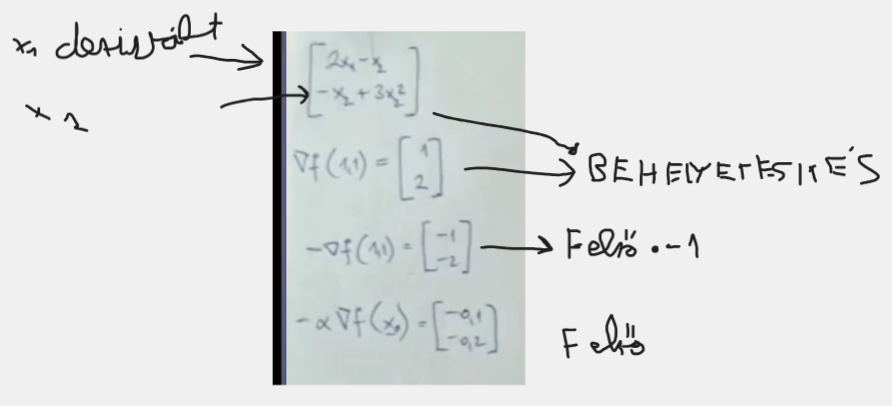 x₁ derivált
x 2
[2x₁ - x₂
-x₂ + 3x₂²]
∇f(1,1) = [1
2]
BEHELYETESITÉS
-∇f(1,1) = [-1
-2]
Felső · -1
-α∇f(x₀) = [-0,1
-0,2]
Felső